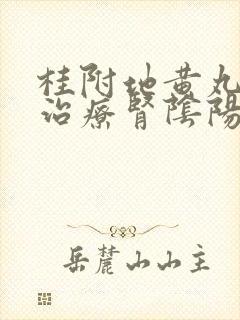 桂附地黄丸
治療腎陰陽
岳麓山山主